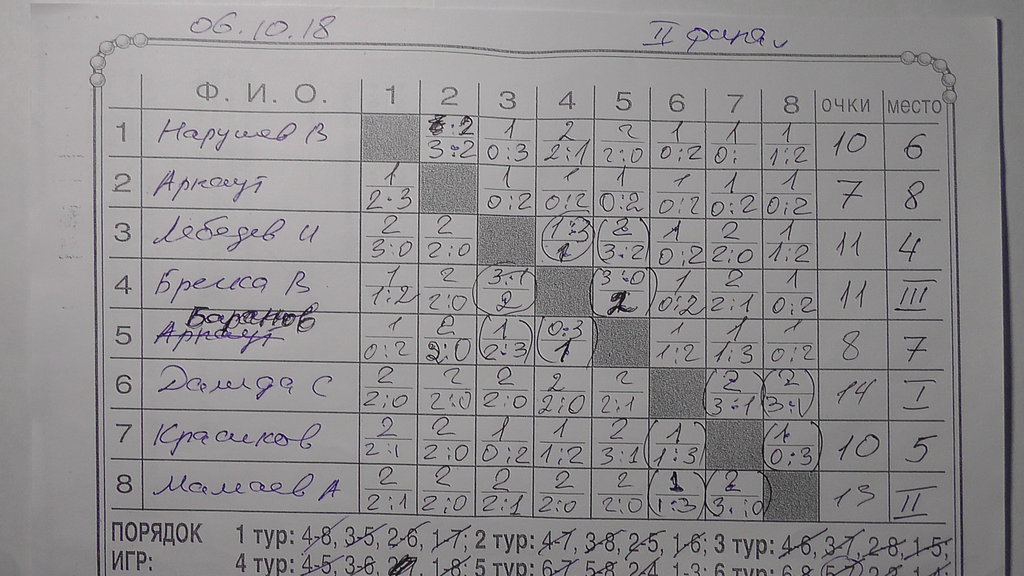 06.10.18 II фина
Ф. И. О. 1 2 3 4 5 6 7 8 очки место
1 Нарушев В 2 3:2 1 0:3 2 2:1 2 2:0 1 0:2 1 0: 1 1:2 10 6
2 Аркаут 1 2:3 1 0:2 1 0:2 1 0:2 1 0:2 1 0:2 1 0:2 7 8
3 Лебедев И 2 3:0 2 2:0 1:3 1 2 3:2 1 0:2 2 2:0 1 1:2 11 4
4 Бреска В 1 1:2 2 2:0 3:1 2 3:0 2 1 0:2 2 2:1 1 0:2 11 III
Баранов
5 Аркаут 1 0:2 2 2:0 1 2:3 0:3 1 1 1:2 1 1:3 1 0:2 8 7
6 Далида С 2 2:0 2 2:0 2 2:0 2 2:0 2 2:1 2 3:1 2 3:1 14 I
7 Красиков 2 2:1 2 2:0 1 0:2 1 1:2 2 3:1 1 1:3 1 0:3 10 5
8 Мамаев А 2 2:1 2 2:0 2 2:1 2 2:0 2 2:0 1 1:3 2 3:0 13 II
ПОРЯДОК 1 тур: 4-8, 3-5, 2-6, 1-7; 2 тур: 4-7, 3-8, 2-5, 1-6; 3 тур: 4-6, 3-7, 2-8, 1-5;
ИГР: 4 тур: 4-5, 3-6, 2-7, 1-8; 5 тур: 6-7, 5-8, 2-4, 1-3; 6 тур: 6-8, 5-7, 2-3, 1-4